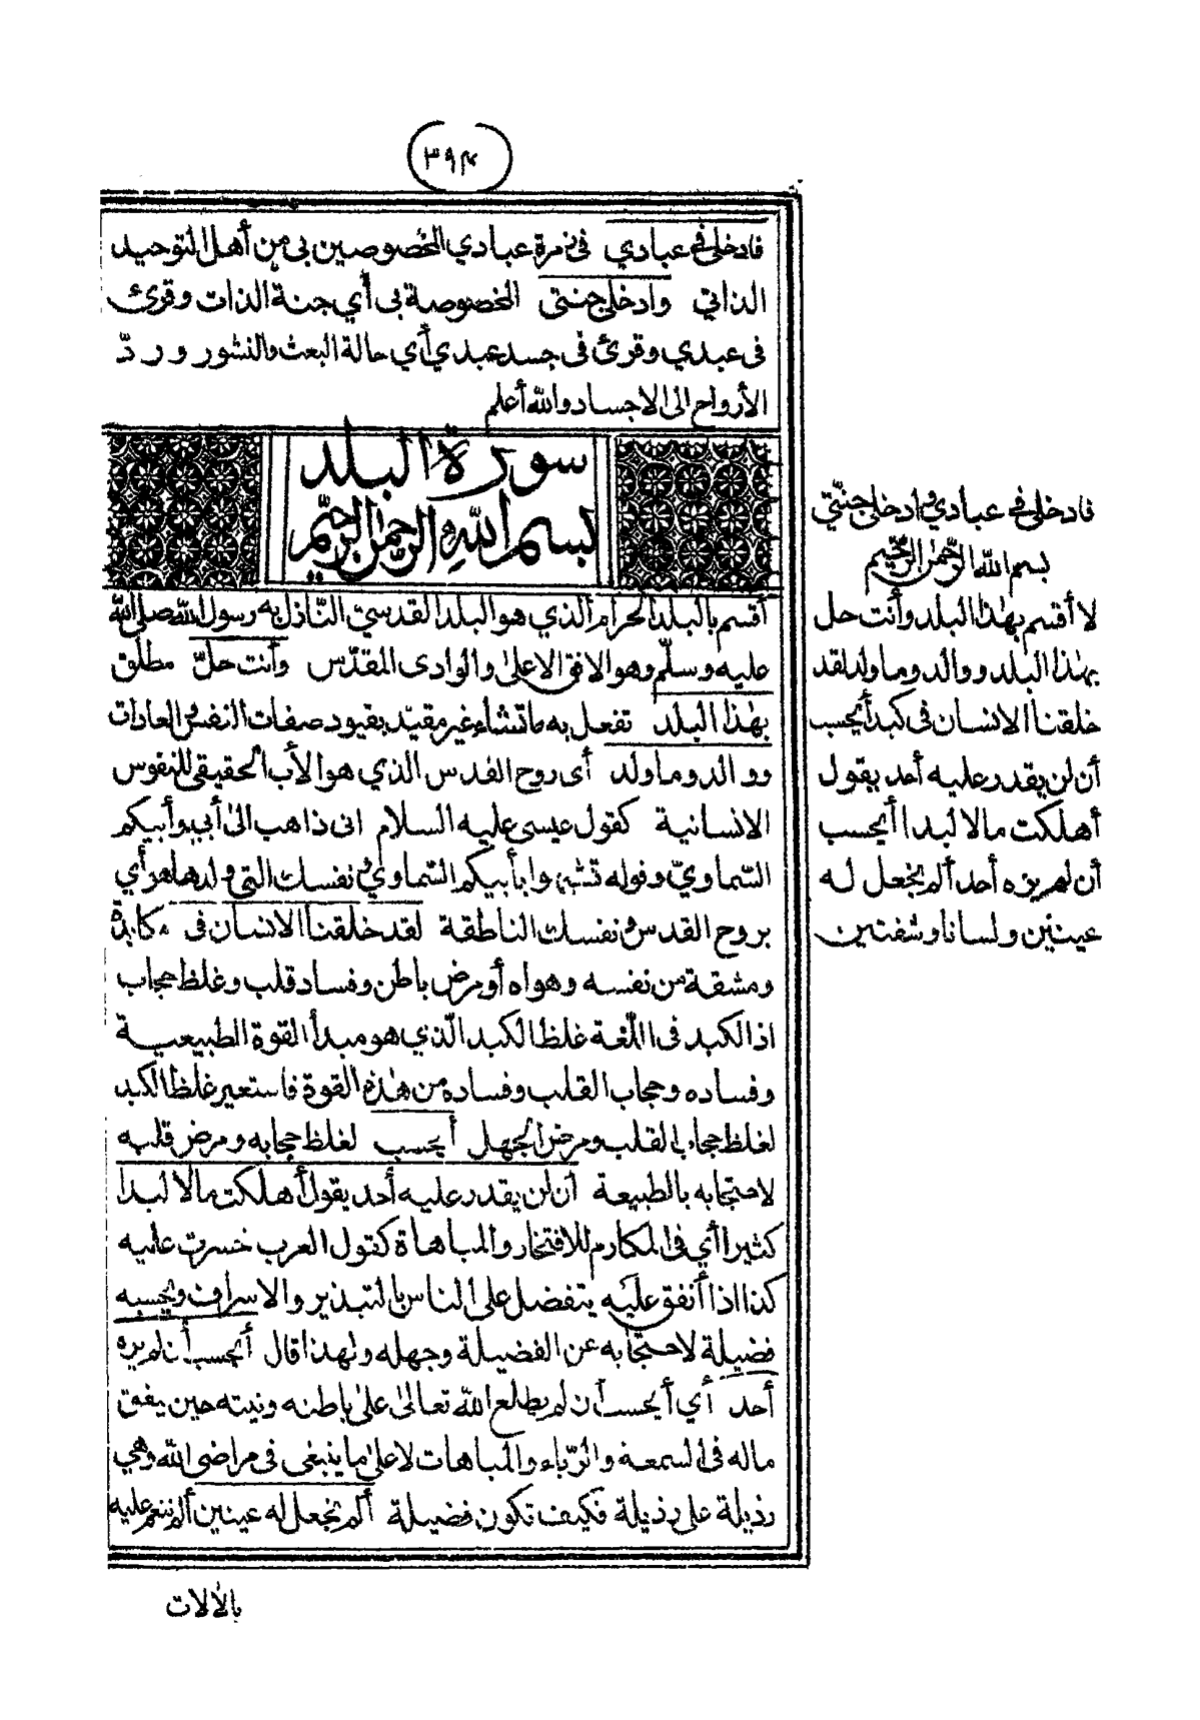 ٣٩٤
فادخلي في عبادي في زمرة عبادي المخصوصين بي من أهل التوحيد
الذاتي وادخلي جنتي المخصوصة بي أي جنة الذات وقرئ
في عبدي وقرئ في جسد عبدي أي حالة البعث والنشور ورد
الأرواح الى الاجساد والله أعلم
سورة البلد
بسم الله الرحمن الرحيم
أقسم بالبلد الحرام الذي هو البلد القدسي النازل به رسول الله صلى الله
عليه وسلم وهو الافق الاعلى والوادى المقدس وأنت حل مطلق
بهذا البلد تفعل به ما تشاء غير مقيد بقيود صفات النفس والعادات
ووالد وما ولد أى روح القدس الذي هو الأب الحقيقي للنفوس
الانسانية كقول عيسى عليه السلام انى ذاهب الى أبي وأبيكم
السماوي وقوله تشبهوا بأبيكم السماوي ونفسك التي ولدها هو أي
بروح القدس ونفسك الناطقة لقد خلقنا الانسان في مكابدة
ومشقة من نفسه وهواه أو مرض باطن وفساد قلب وغلظ حجاب
اذ الكبد في اللغة غلظ الكبد الذي هو مبدأ القوة الطبيعية
وفساده وحجاب القلب وفساده من هذه القوة فاستعير غلظ الكبد
لغلظ حجاب القلب ومرض الجهل أيحسب لغلظ حجابه ومرض قلبه
لاحتجابه بالطبيعة أن لن يقدر عليه أحد يقول أهلكت مالا لبدا
كثيرا أي في المكارم للافتخار والمباهاة كقول العرب خسرت عليه
كذا اذا أنفق عليه يتفضل على الناس بالتبذير والاسراف ويحسبه
فضيلة لاحتجابه عن الفضيلة وجهله ولهذا قال أيحسب أن لم يره
أحد أي أيحسب أن لم يطلع الله تعالى على باطنه ونيته حين ينفق
ماله في السمعة والرياء والمباهات لا على ما ينبغى في مراضى الله وهي
رذيلة على رذيلة فكيف تكون فضيلة ألم نجعل له عينين ألم ننعم عليه
بالآلات
فادخلي في عبادي وادخلي جنتي
بسم الله الرحمن الرحيم
لا أقسم بهذا البلد وأنت حل
بهذا البلد ووالد وما ولد لقد
خلقنا الانسان في كبد أيحسب
أن لن يقدر عليه أحد يقول
أهلكت مالا لبدا أيحسب
أن لم يره أحد ألم نجعل له
عينين ولسانا وشفتين